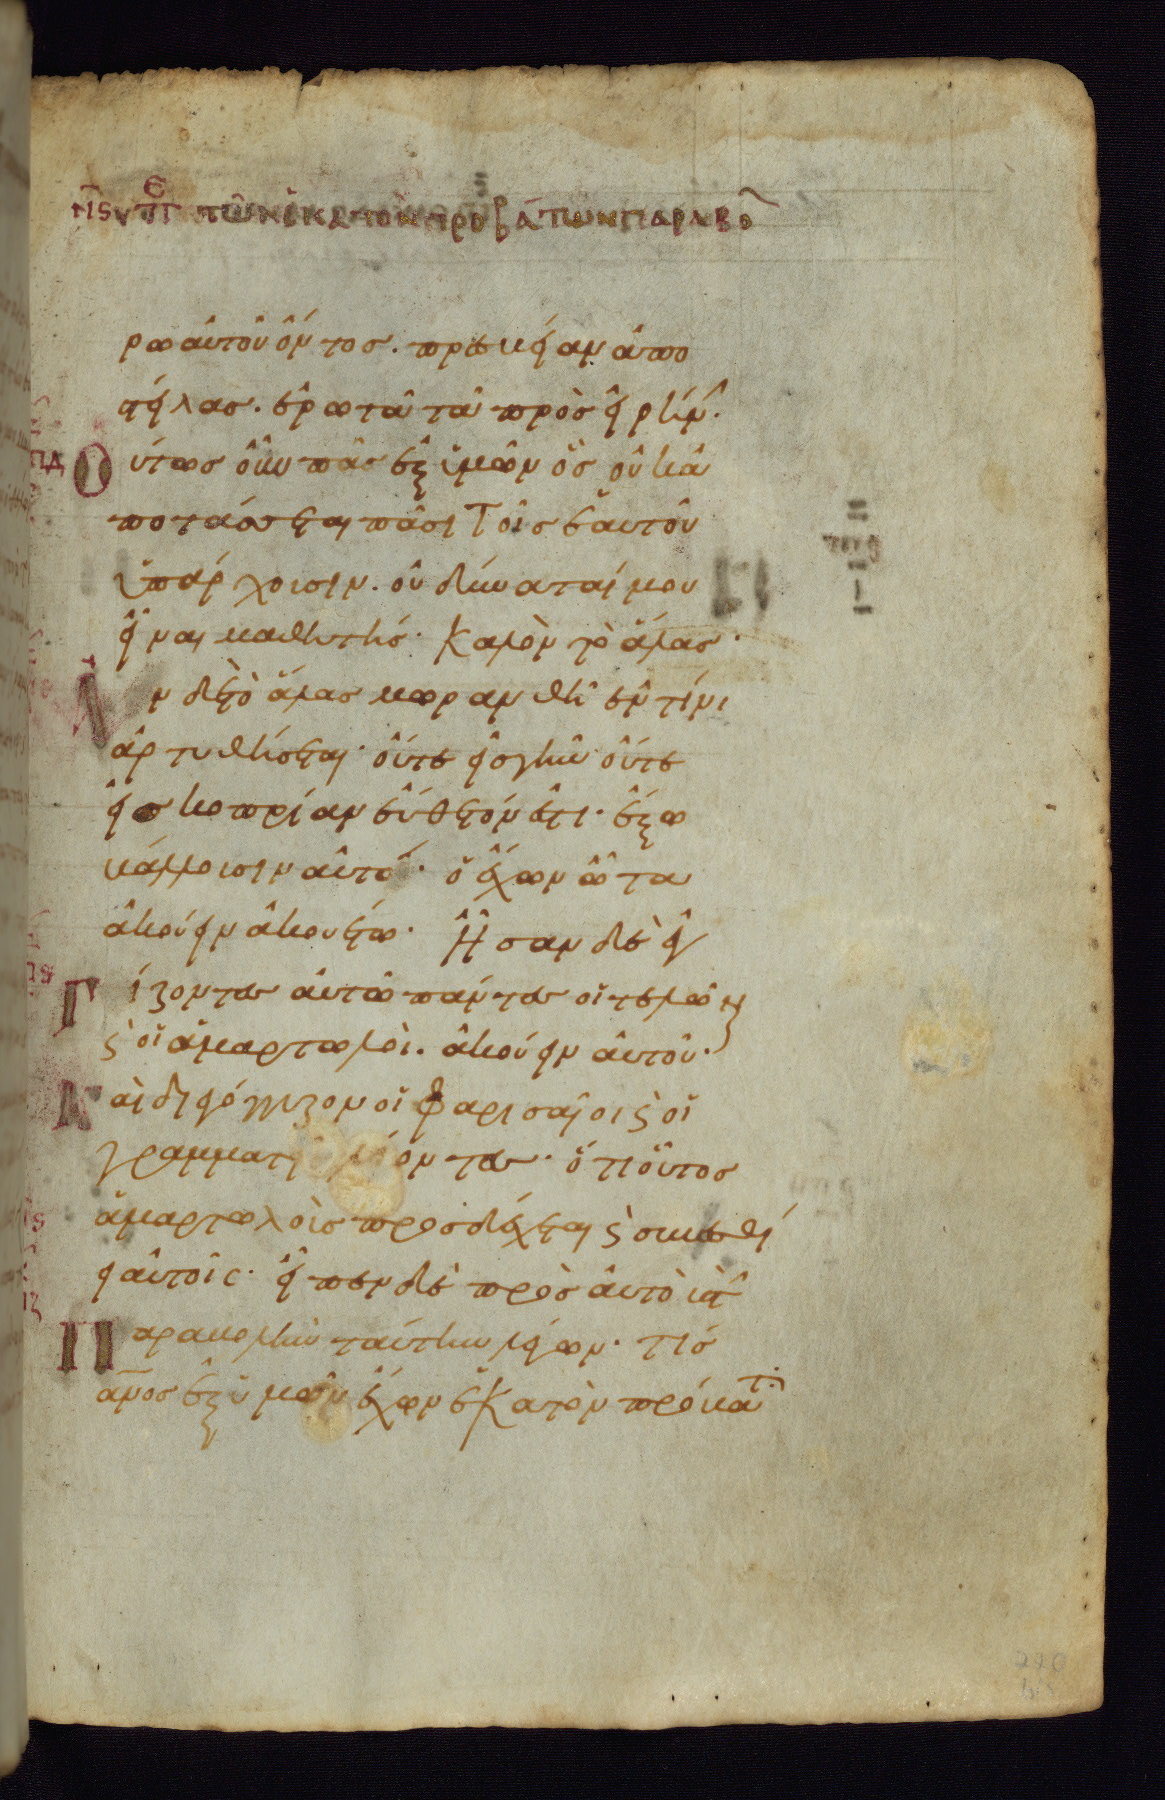 πε τῶν ἑκατὸν προβάτων παραβο
ρω αὐτοῦ ὄντος. πρεσβείαν ἀπο
στείλας. ἐρωτᾶ τὰ πρὸς εἰρήν
ΠΔ Οὕτως οὖν πᾶς ἐξ ὑμῶν ὃς οὐκ ἀ
ποτάσσεται πᾶσι τοῖς ἑαυτοῦ
ὑπάρχουσιν. οὐ δύναταί μου
εἶναι μαθητής· Καλὸν τὸ ἅλας·
Ἐὰν δὲ τὸ ἅλας μωρανθῆ ἐν τίνι
ἀρτυθήσεται· οὔτε εἰς γῆν οὔτε
εἰς κοπρίαν εὔθετόν ἐστι· ἔξω
βάλλουσιν αὐτό· ὁ ἔχων ὦτα
ἀκούειν ἀκουέτω· Ἦσαν δὲ ἐγ
Γίζοντες αὐτῶ πάντες οἱ τελῶν
ϗ οἱ ἁμαρτωλοὶ. ἀκούειν αὐτοῦ·
Καὶ διεγόγγυζον οἱ Φαρισαῖοι ϗ οἱ
γραμματεῖς λέγοντες· ὅτι οὗτος
ἁμαρτωλοὺς προσδέχεται ϗ συνεσθί
ει αὐτοῖς· εἶπεν δὲ πρὸς αὐτοὺς τ
Παραβολὴν ταύτην λέγων· τίς
ἄνος ἐξ ὑμῶν ἔχων ἑκατὸν πρόβατ